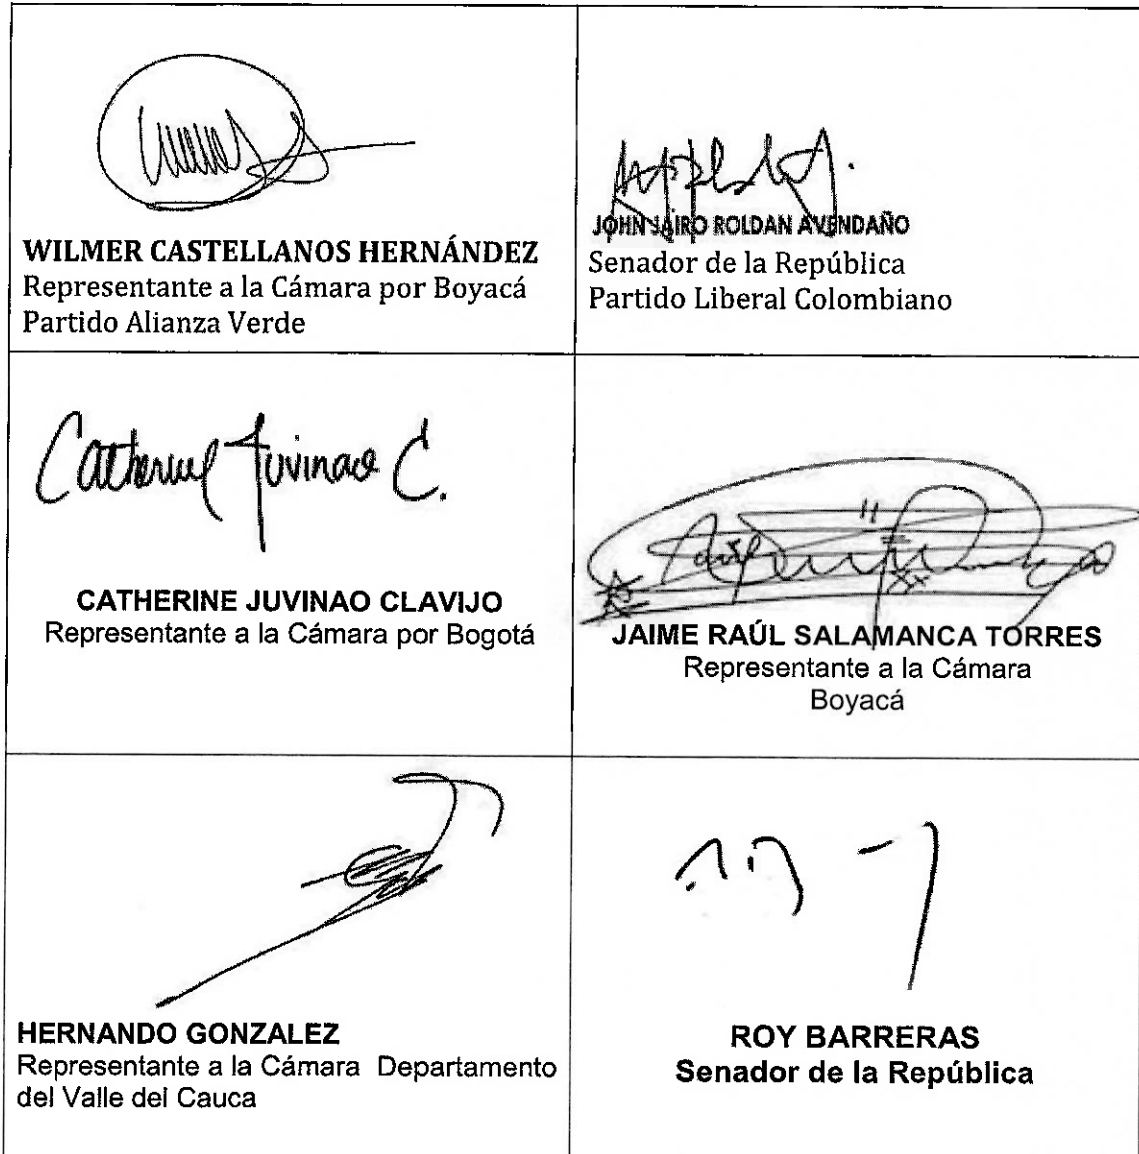 WILMER CASTELLANOS HERNÁNDEZ
Representante a la Cámara por Boyacá
Partido Alianza Verde
JOHN JAIRO ROLDAN AVENDAÑO
Senador de la República
Partido Liberal Colombiano
Catherine Juvinao C.
CATHERINE JUVINAO CLAVIJO
Representante a la Cámara por Bogotá
JAIME RAÚL SALAMANCA TORRES
Representante a la Cámara
Boyacá
HERNANDO GONZALEZ
Representante a la Cámara Departamento
del Valle del Cauca
ROY BARRERAS
Senador de la República